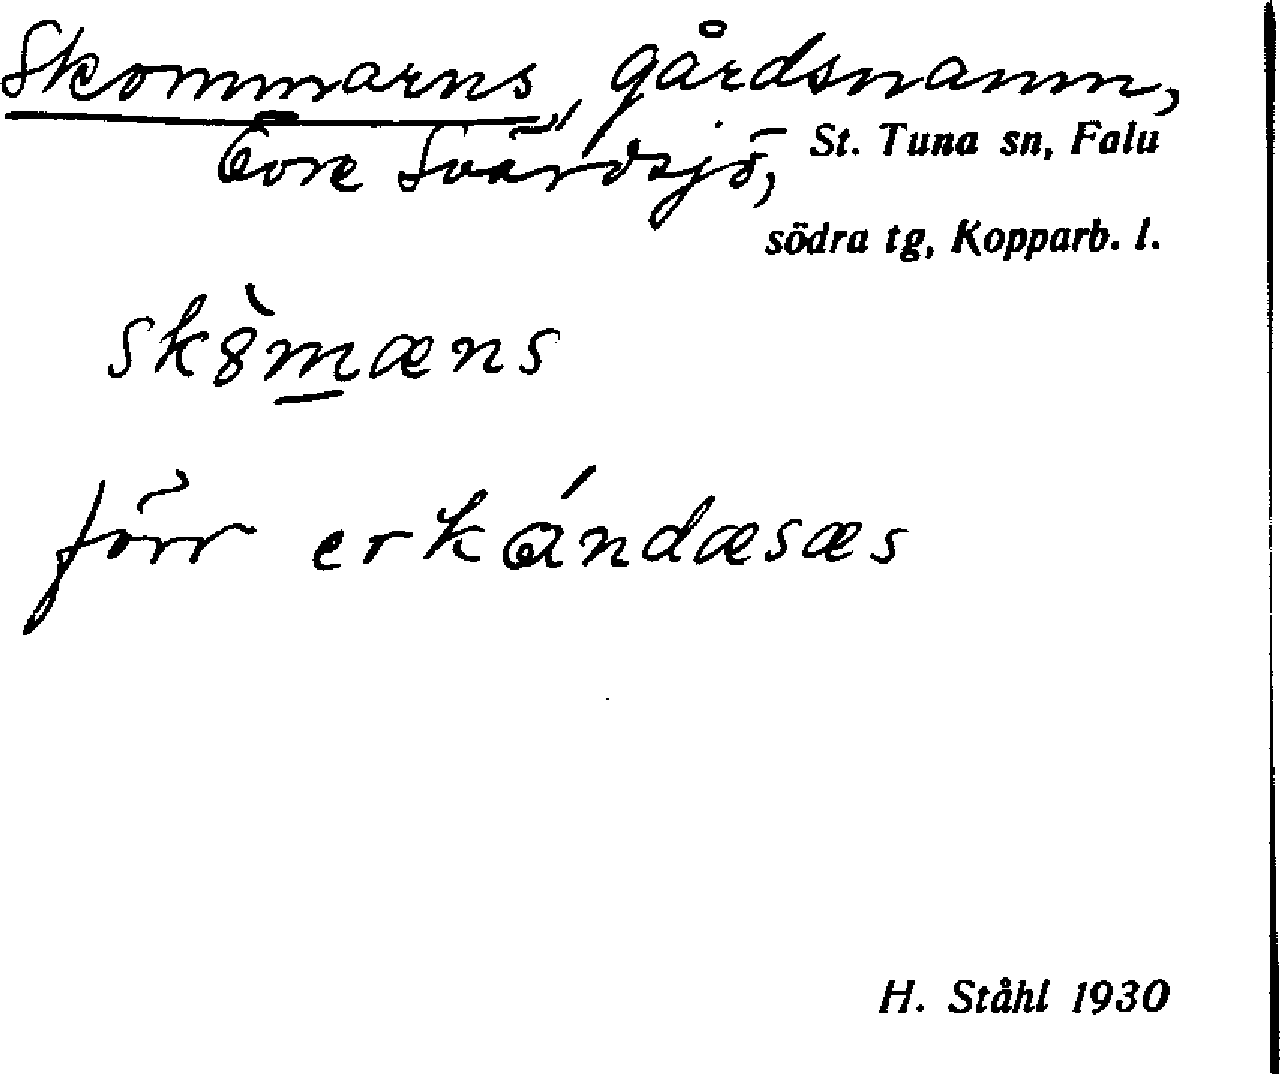 Skommarns, gårdsnamn,
Övre Svärdsjö, St. Tuna sn, Falu
södra tg, Kopparb. l.
sk8̀m̲æns
förr erkándæsæs
H. Ståhl 1930